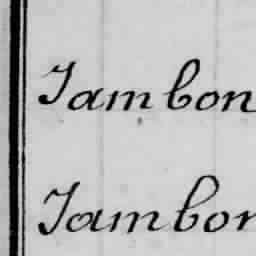 Jambon
Jambon